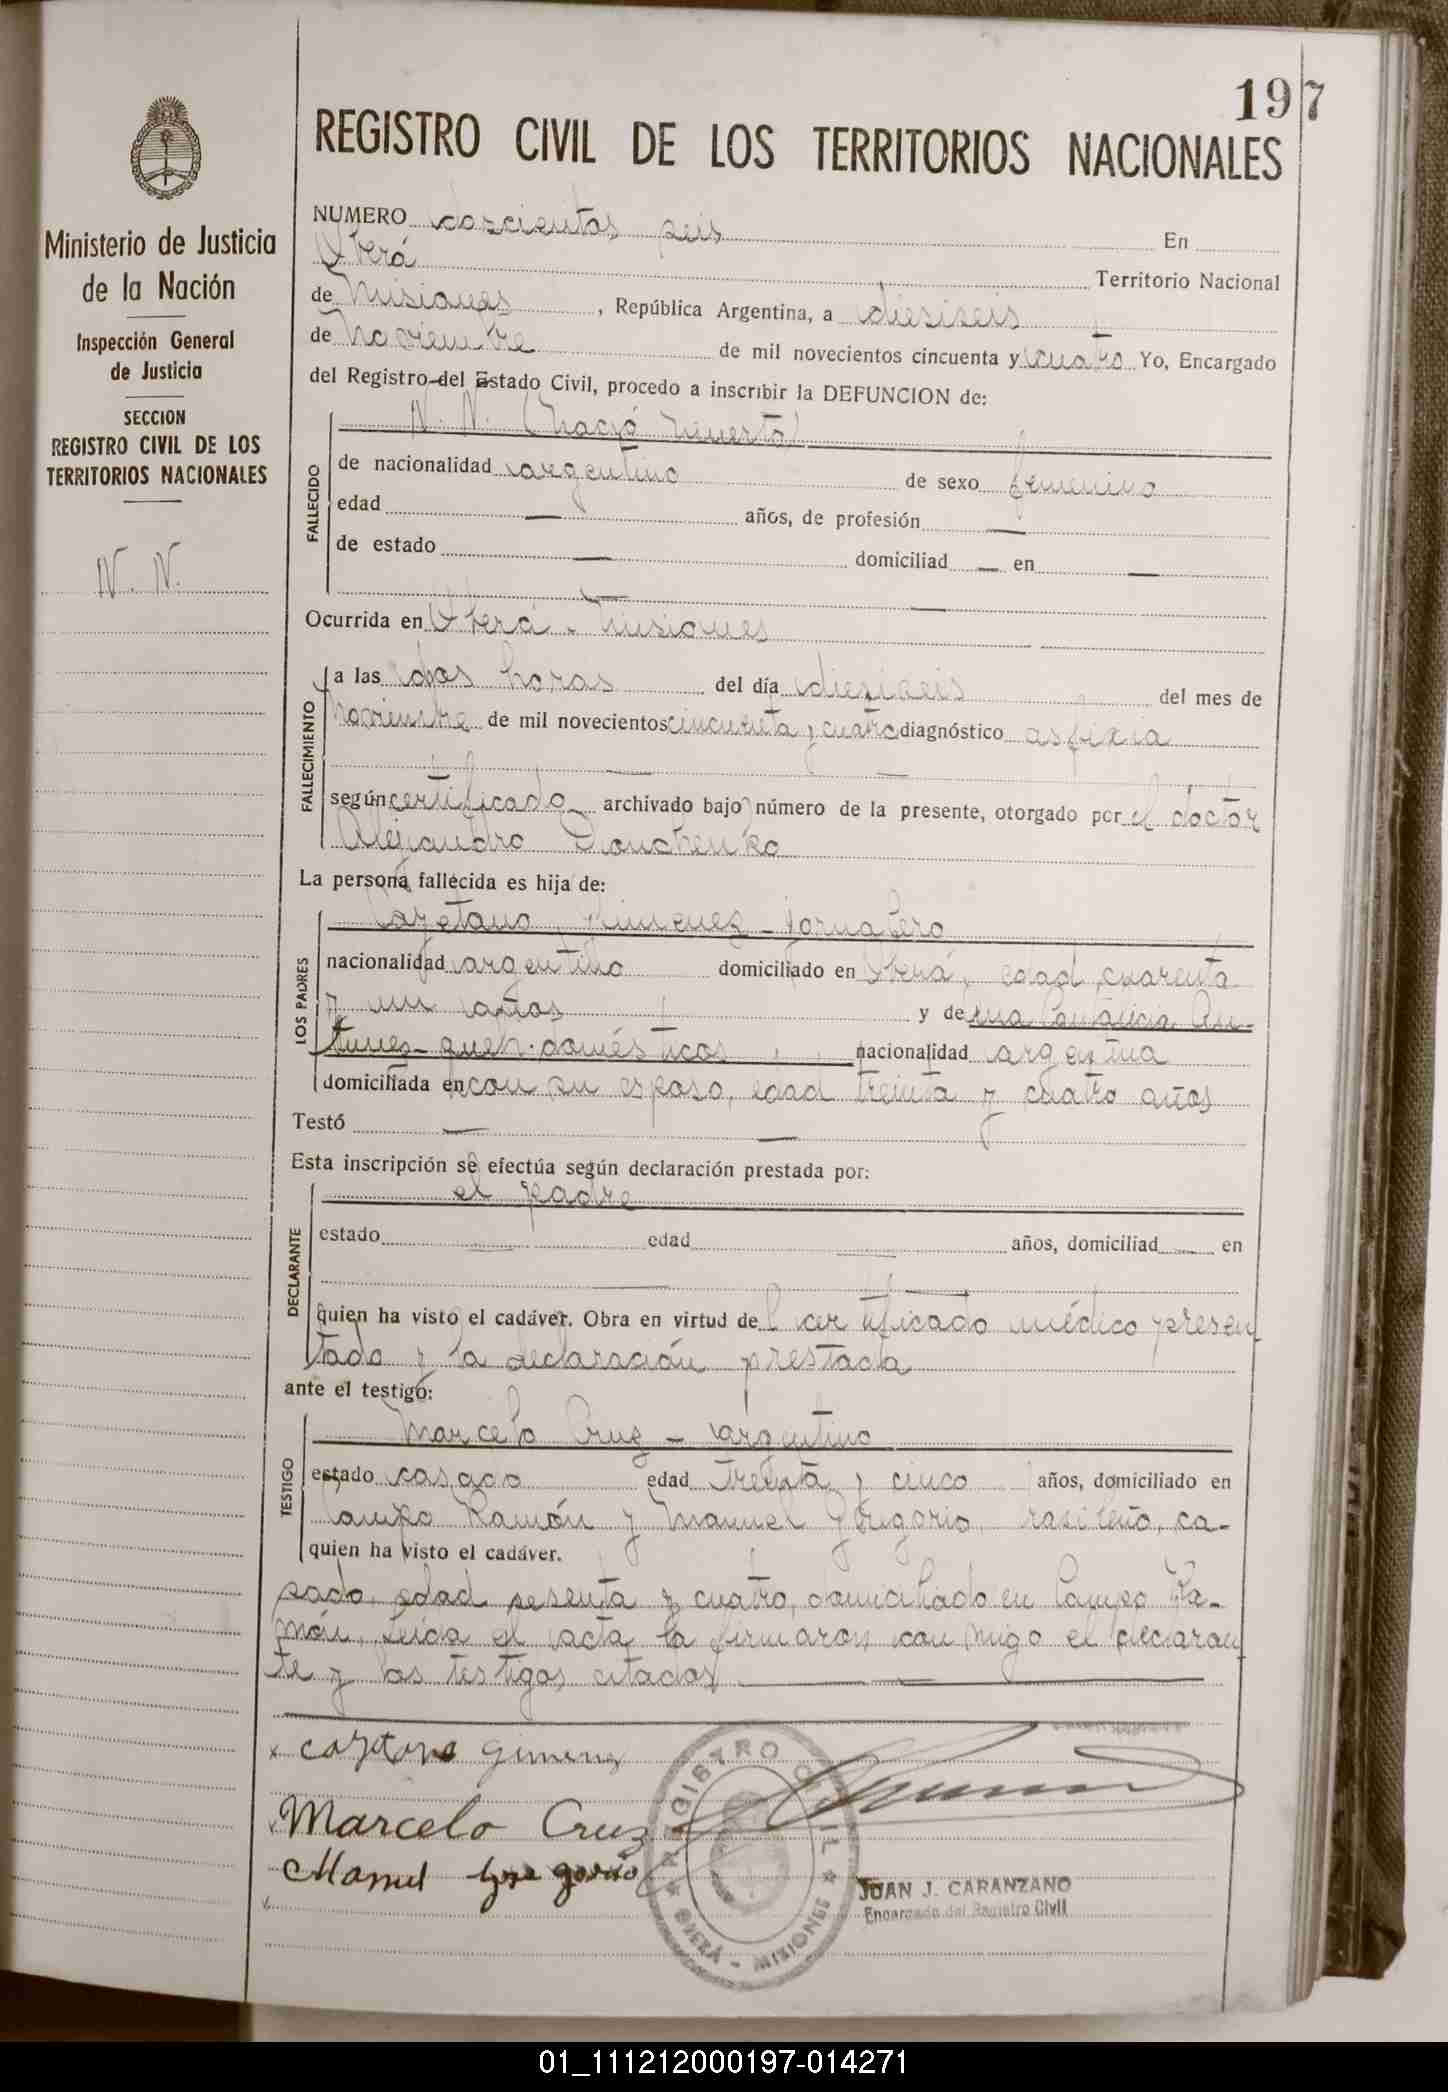 197
REGISTRO CIVIL DE LOS TERRITORIOS NACIONALES
Ministerio de Justicia
de la Nación
Inspección General
de Justicia
SECCION
REGISTRO CIVIL DE LOS
TERRITORIOS NACIONALES
N. N.
NUMERO doscientos seis En
Oberá Territorio Nacional
de Misiones, República Argentina, a dieciseis
de noviembre de mil novecientos cincuenta y cuatro Yo, Encargado
del Registro del Estado Civil, procedo a inscribir la DEFUNCION de:
FALLECIDO
N. N. (nació muerto)
de nacionalidad argentino de sexo femenino
edad — años, de profesión —
de estado — domiciliad — en —
Ocurrida en Oberá - Misiones
FALLECIMIENTO
a las dos horas del día dieciseis del mes de
noviembre de mil novecientos cincuenta y cuatro diagnóstico asfixia
según certificado archivado bajo número de la presente, otorgado por el doctor
Alejandro
La persona fallecida es hija de:
LOS PADRES
Cayetano Jimenez - Jornalero
nacionalidad argentino domiciliado en Oberá, edad cuarenta
y un años y de
tunez - queh. domésticos nacionalidad argentina
domiciliada en con su esposo, edad treinta y cuatro años
Testó —
Esta inscripción se efectúa según declaración prestada por:
DECLARANTE
el padre
estado edad años, domiciliad en
quien ha visto el cadáver. Obra en virtud del certificado médico presen
tado y la declaración prestada
ante el testigo:
TESTIGO
Marcelo Cruz - argentino
estado casado edad treinta y cinco años, domiciliado en
Campo Ramón y Manuel Gregorio, rasileño, ca-
quien ha visto el cadáver.
sado, edad sesenta y cuatro, domiciliado en Campo Ra-
món, leída el acta la firmaron con migo el declaran
te y los testigos citados
Marcelo Cruz
Manuel
REGISTRO CIVIL
OBERÁ - MISIONES
JUAN J. CARANZANO
Encargado del Registro Civil
01_111212000197-014271